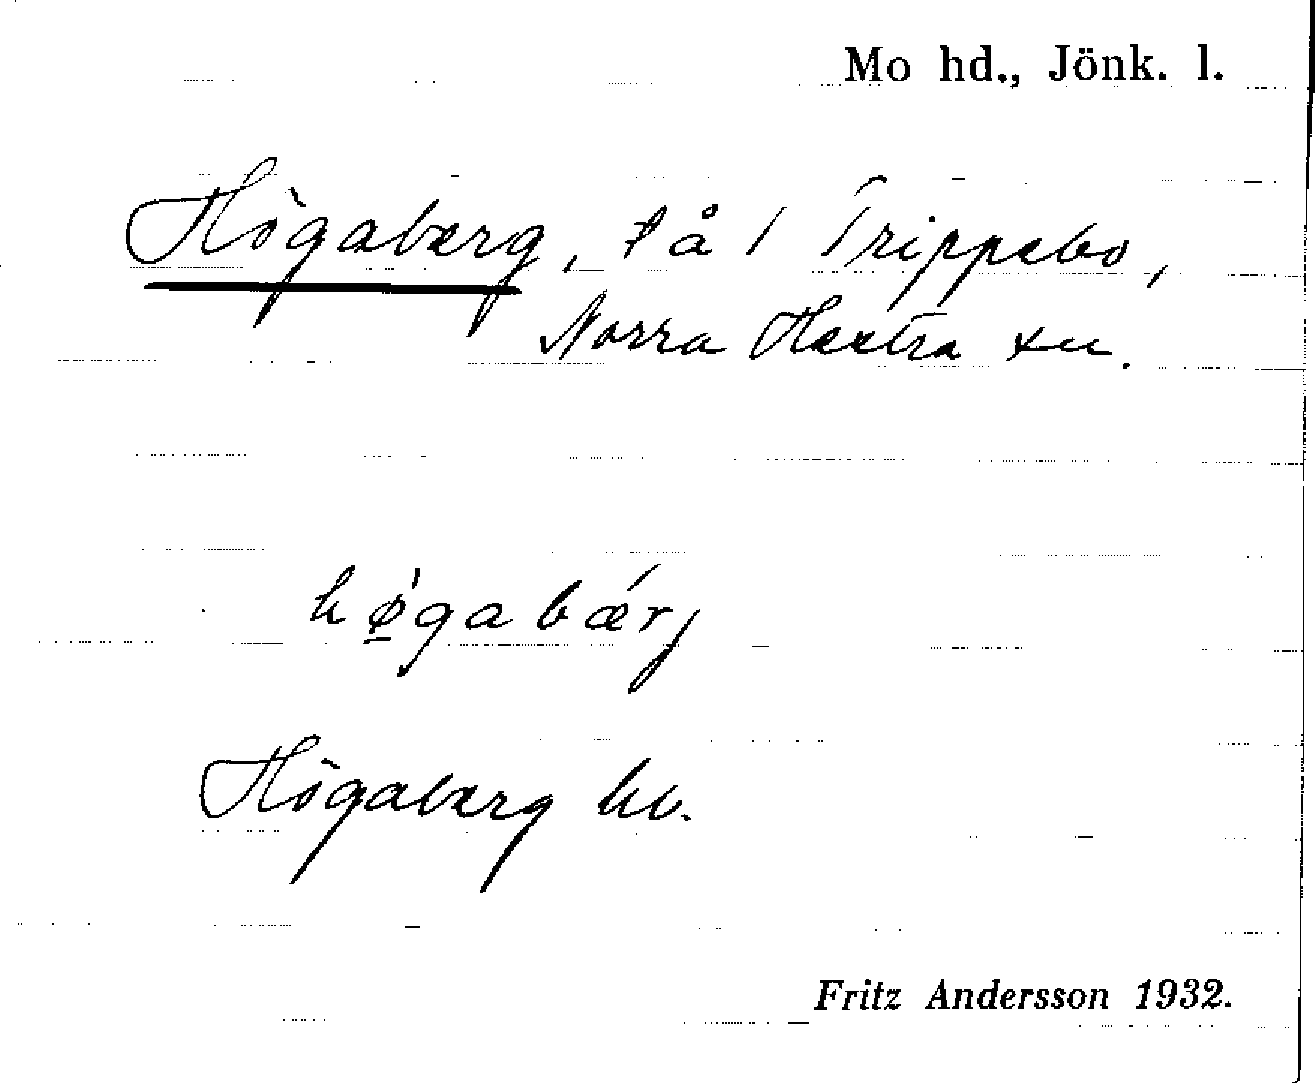 Mo hd., Jönk. l.
Högaberg, t å 1 Trippebo,
Norra Hestra sn.
hø̲̀gabǽrj
Högaberg hb.
Fritz Andersson 1932.